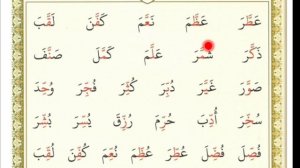 عَطَّرَ عَظَّمَ نَعَّمَ كَفَّنَ لَقَّبَ
ذَكَّرَ شَمَّرَ عَلَّمَ كَمَّلَ صَنَّفَ
صَوَّرَ غَيَّرَ دُبِّرَ كُثِّرَ فُجِّرَ وُحِّدَ
سُخِّرَ أُدِّبَ حُرِّمَ رُزِّقَ يُسِّرَ بُشِّرَ
فُصِّلَ فُضِّلَ عُطِّرَ عُظِّمَ نُعِّمَ كُفِّنَ لُقِّبَ